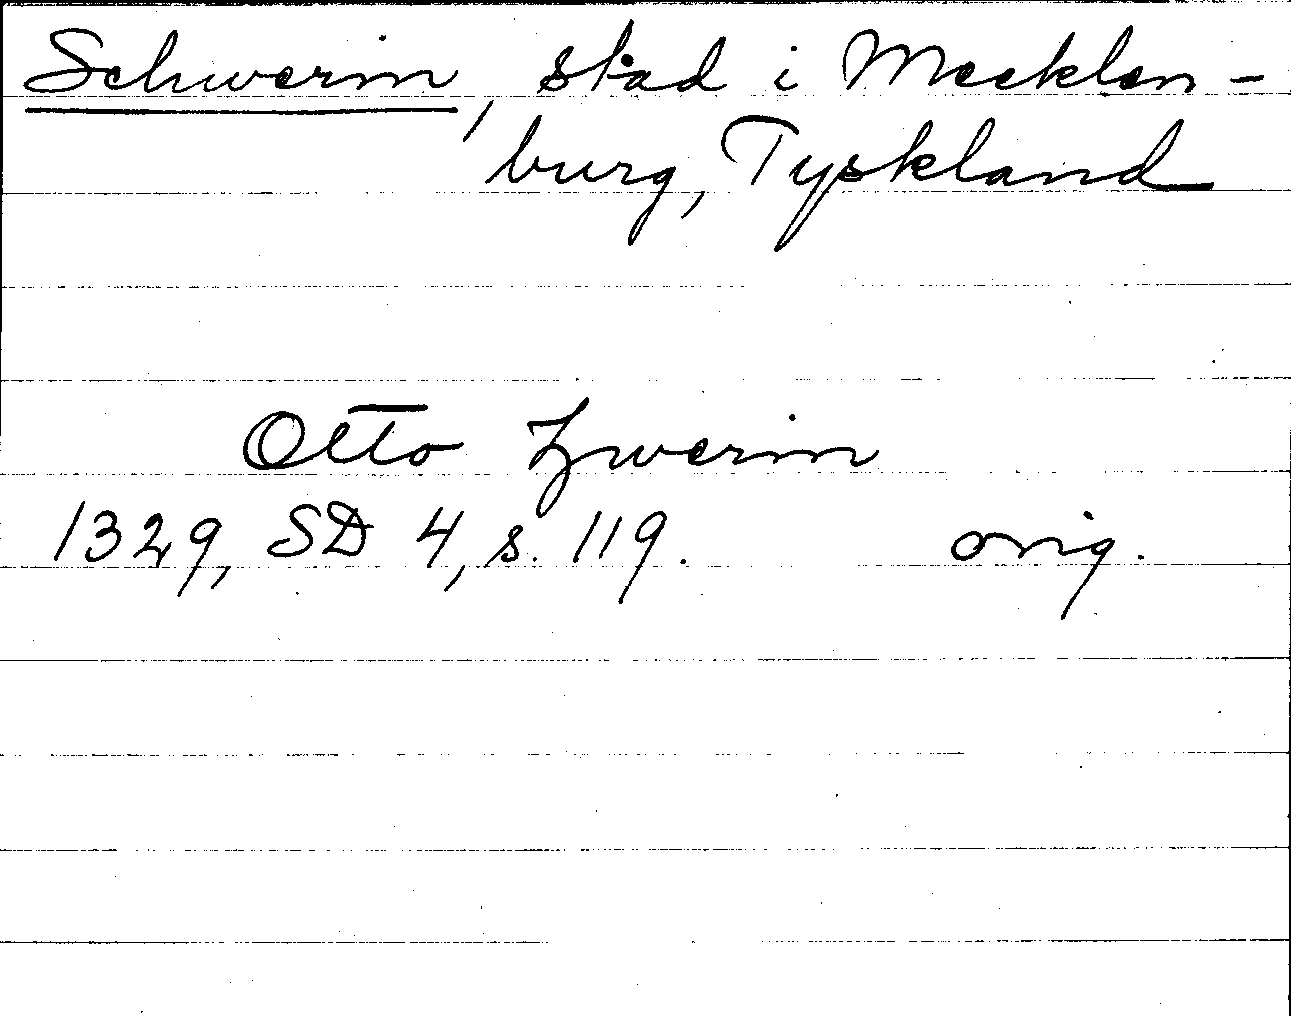 Schwerin, stad i Mecklen-
burg, Tyskland
Otto Zwerin
1329, SD 4, s. 119. orig.